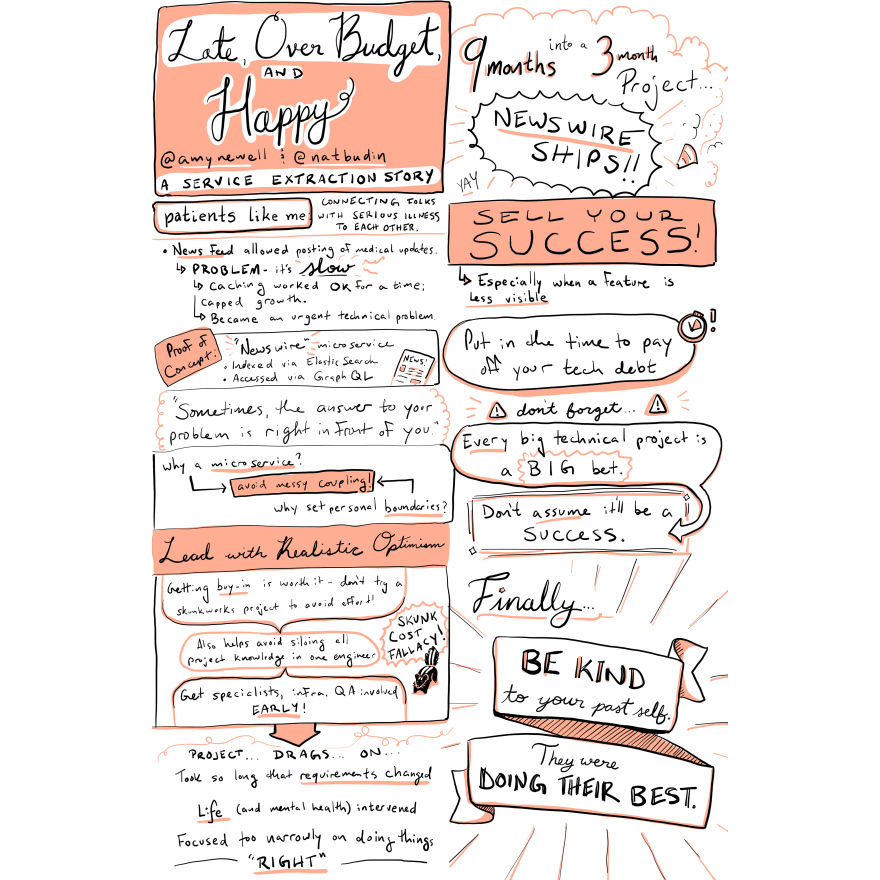 Late, Over Budget,
AND
Happy
@amynewell & @natbudin
A SERVICE EXTRACTION STORY
patients like me
CONNECTING FOLKS
WITH SERIOUS ILLNESS
TO EACH OTHER.
• News Feed allowed posting of medical updates.
↳ PROBLEM - it's slow
↳ Caching worked OK for a time;
capped growth.
↳ Became an urgent technical problem.
Proof of
Concept.
"Newswire" microservice
• Indexed via ElasticSearch
• Accessed via GraphQL
NEWS!
"Sometimes, the answer to your
problem is right in front of you."
why a microservice?
avoid messy coupling!
why set personal boundaries?
Lead with Realistic Optimism
Getting buy-in is worth it - don't try a
skunkworks project to avoid effort!
SKUNK
COST
FALLACY!
Also helps avoid siloing all
project knowledge in one engineer
Get specialists, infra, QA involved
EARLY!
PROJECT... DRAGS... ON...
Took so long that requirements changed
Life (and mental health) intervened
Focused too narrowly on doing things
"RIGHT"
9 months into a 3 month
Project...
NEWSWIRE
SHIPS!!
YAY
SELL YOUR
SUCCESS!
↳ Especially when a feature is
less visible
Put in the time to pay
off your tech debt
!
! don't forget... !
Every big technical project is
a BIG bet.
Don't assume it'll be a
SUCCESS.
Finally...
BE KIND
to your past self.
They were
DOING THEIR BEST.